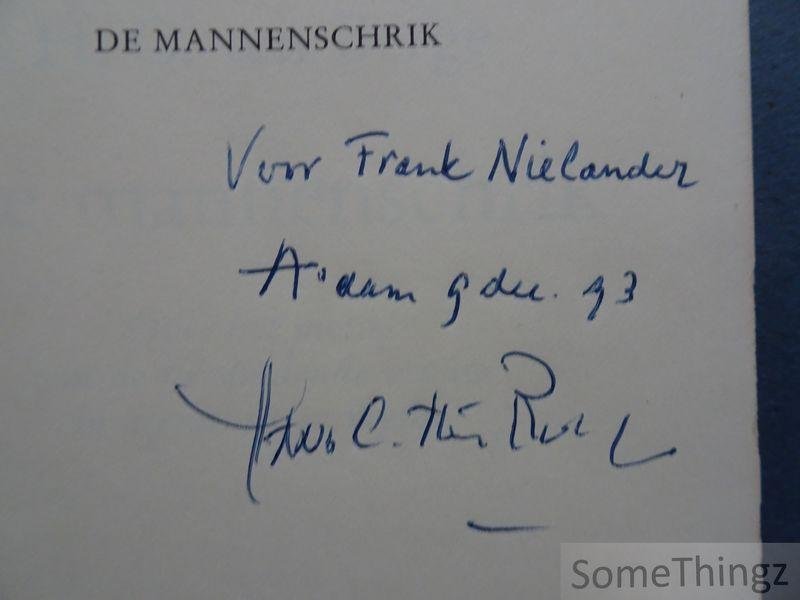 DE MANNENSCHRIK
Voor Frank Nielander
A'dam 9 dec. 93
Hans C. ten Berge
SomeThingz